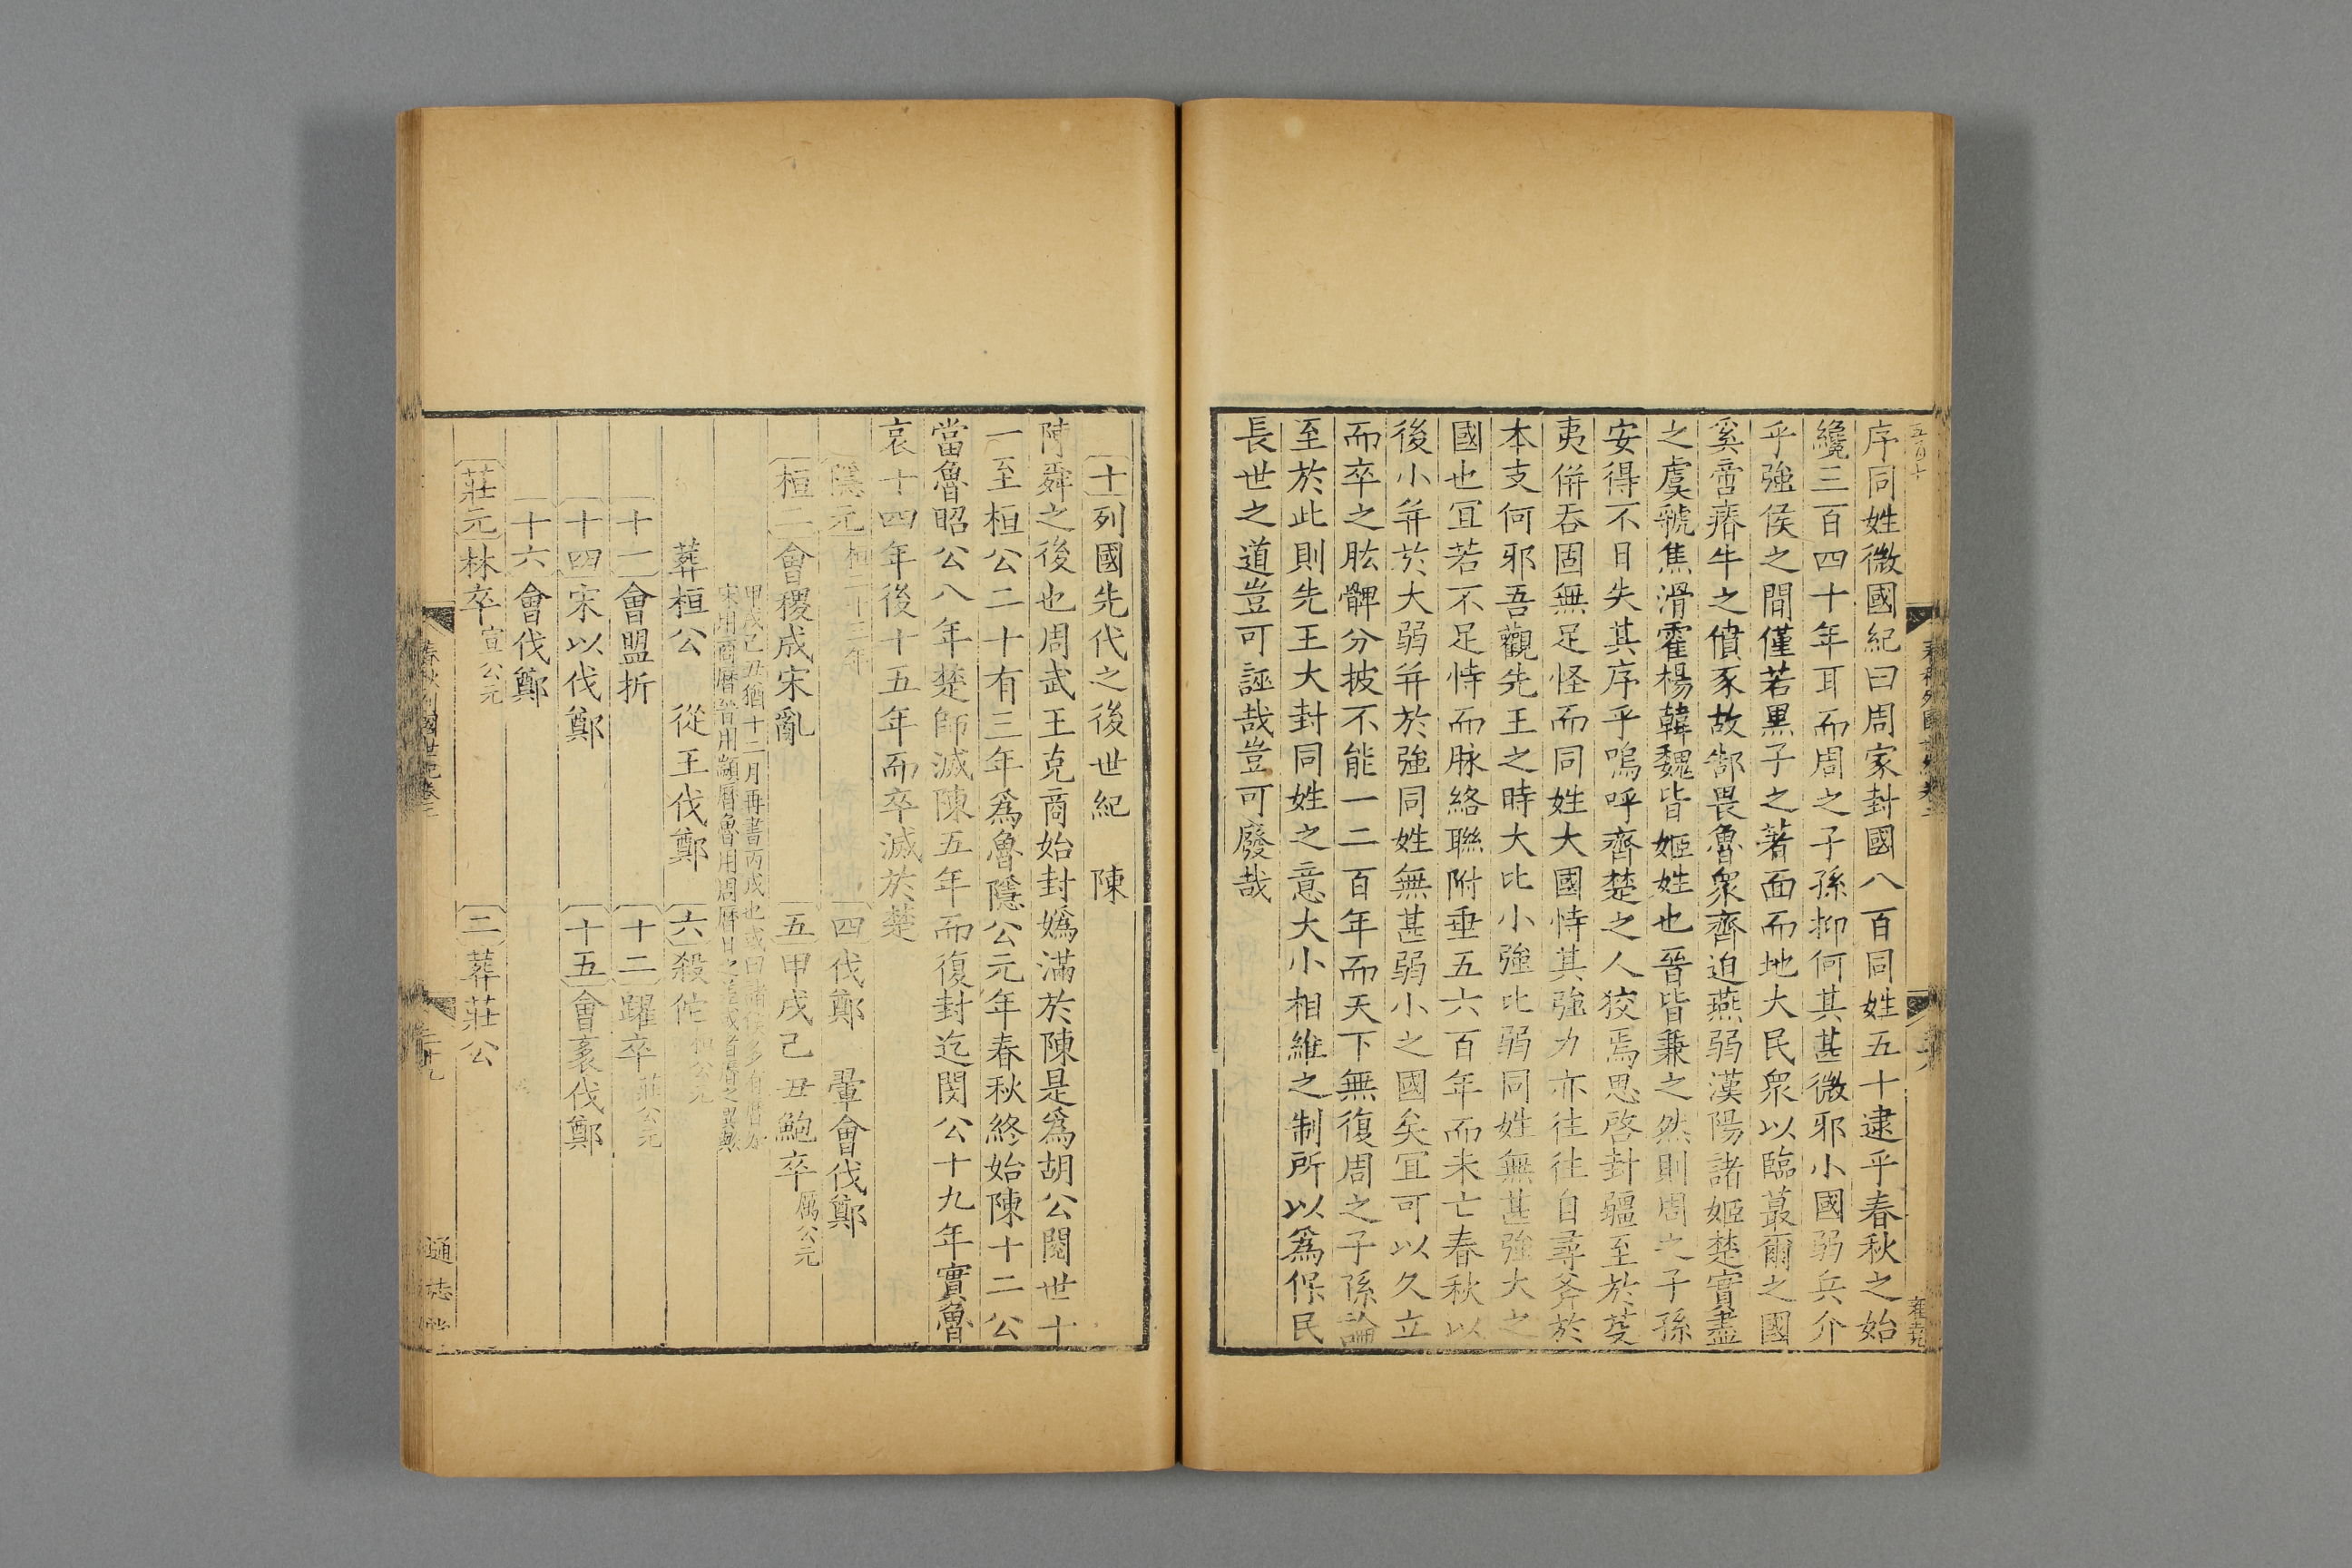 五百十
序同姓微國紀曰周家封國八百同姓五十逮乎春秋之始
纔三百四十年耳而周之子孫抑何其甚微邪小國弱兵介
乎強侯之間僅若黒子之著面而地大民衆以臨蕞爾之國
奚啻瘠牛之僨豕故郜畏魯衆齊迫燕弱漢陽諸姬楚實盡
之虞虢焦滑霍楊韓魏皆姬姓也晉皆兼之然則周之子孫
安得不日失其序乎嗚呼齊楚之人狡焉思啓封疆至於芟
夷併吞固無足怪而同姓大國恃其強力亦徃徃自尋斧於
本支何邪吾觀先王之時大比小強比弱同姓無甚強大之
國也宜若不足恃而脉絡聯附垂五六百年而未亡春秋以
後小并於大弱并於強同姓無甚弱小之國矣宜可以久立
而卒之肱髀分披不能一二百年而天下無復周之子孫論
至於此則先王大封同姓之意大小相維之制所以爲保民
長世之道豈可誣哉豈可廢哉
十列國先代之後世紀 陳
陳舜之後也周武王克商始封嬀滿於陳是爲胡公閱世十
一至桓公二十有三年爲魯隱公元年春秋終始陳十二公
當魯昭公八年楚師滅陳五年而復封迄閔公十九年實魯
哀十四年後十五年而卒滅於楚
隱元 桓二十三年 四伐鄭 翬會伐鄭
桓二會稷成宋亂 五甲戌己丑鮑卒 厲公元
甲戌己丑猶十二月再書丙戌也或曰諸侯多有曆
宋用商曆晉用顓曆魯用周曆日之差或者曆之異
葬桓公 從王伐鄭 六殺佗 桓公元
十一會盟折 十二躍卒 莊公元
十四宋以伐鄭 十五會袲伐鄭
十六會伐鄭
莊元林卒 宣公元 二葬莊公
春秋列國世紀卷二
二十九
通志堂